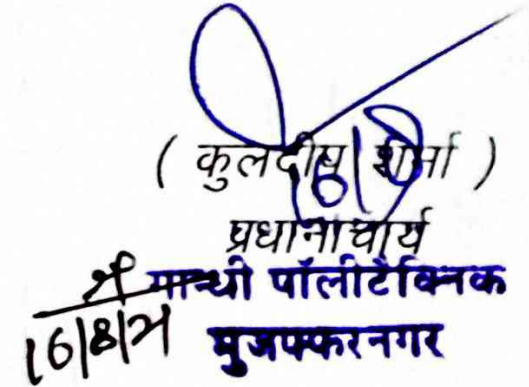 ( कुलदीप शर्मा )
प्रधानाचार्य
गान्धी पॉलीटैक्निक
16/8/21 मुजफ्फरनगर